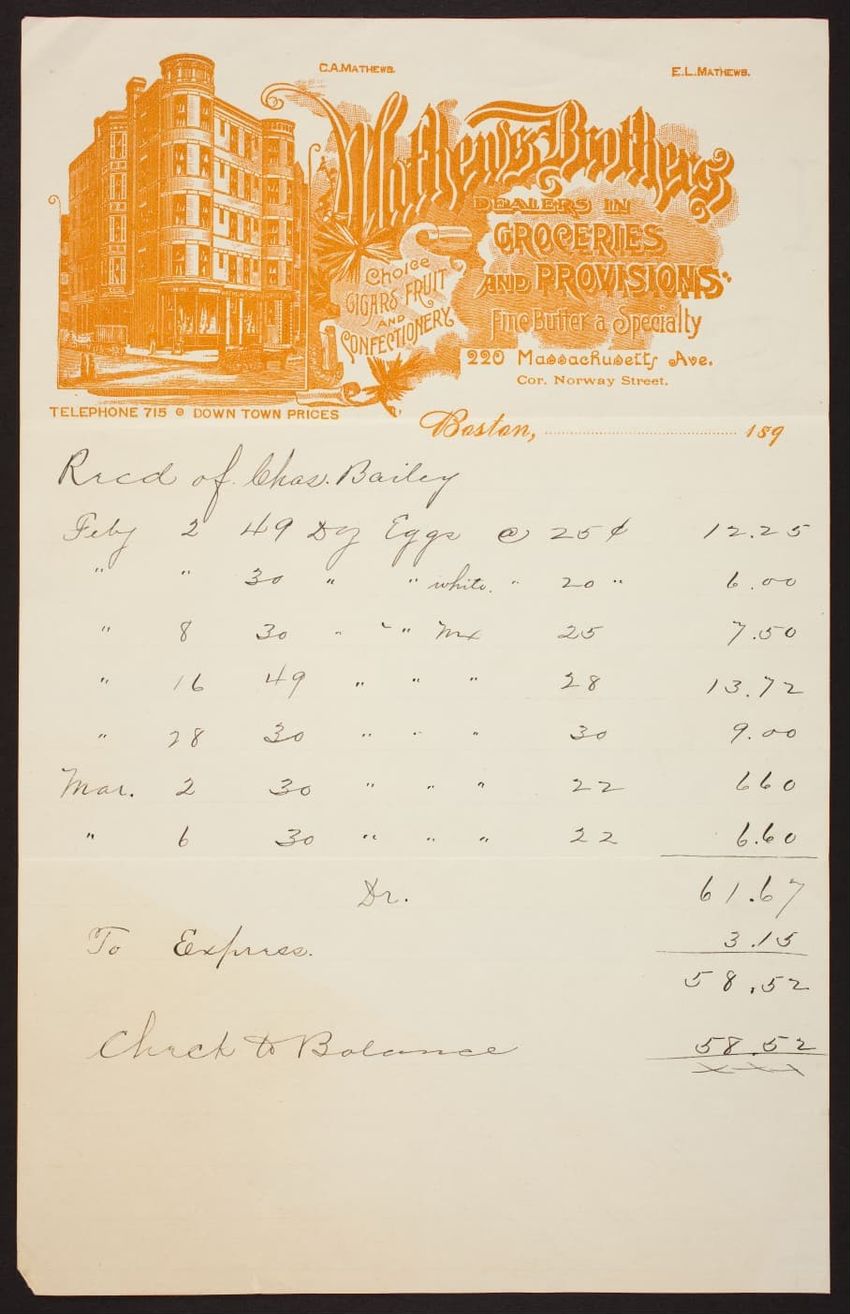 C.A. MATHEWS. E.L. MATHEWS.
Mathews Brothers
DEALERS IN
GROCERIES
AND PROVISIONS
Fine Butter a Specialty
Choice
CIGARS FRUIT
AND
CONFECTIONERY
220 Massachusetts Ave.
Cor. Norway Street.
TELEPHONE 715 @ DOWN TOWN PRICES
Boston, 189
Recd of Chas. Bailey
Feby 2 49 Dz Eggs @ 25¢ 12.25
" " 30 " " white. " 20 " 6.00
" 8 30 " " " Mx 25 7.50
" 16 49 " " " 28 13.72
" 28 30 " " " 30 9.00
Mar. 2 30 " " " 22 660
" 6 30 " " " 22 6.60
Dr. 61.67
To Express. 3.15
58.52
Check to Balance 58.52